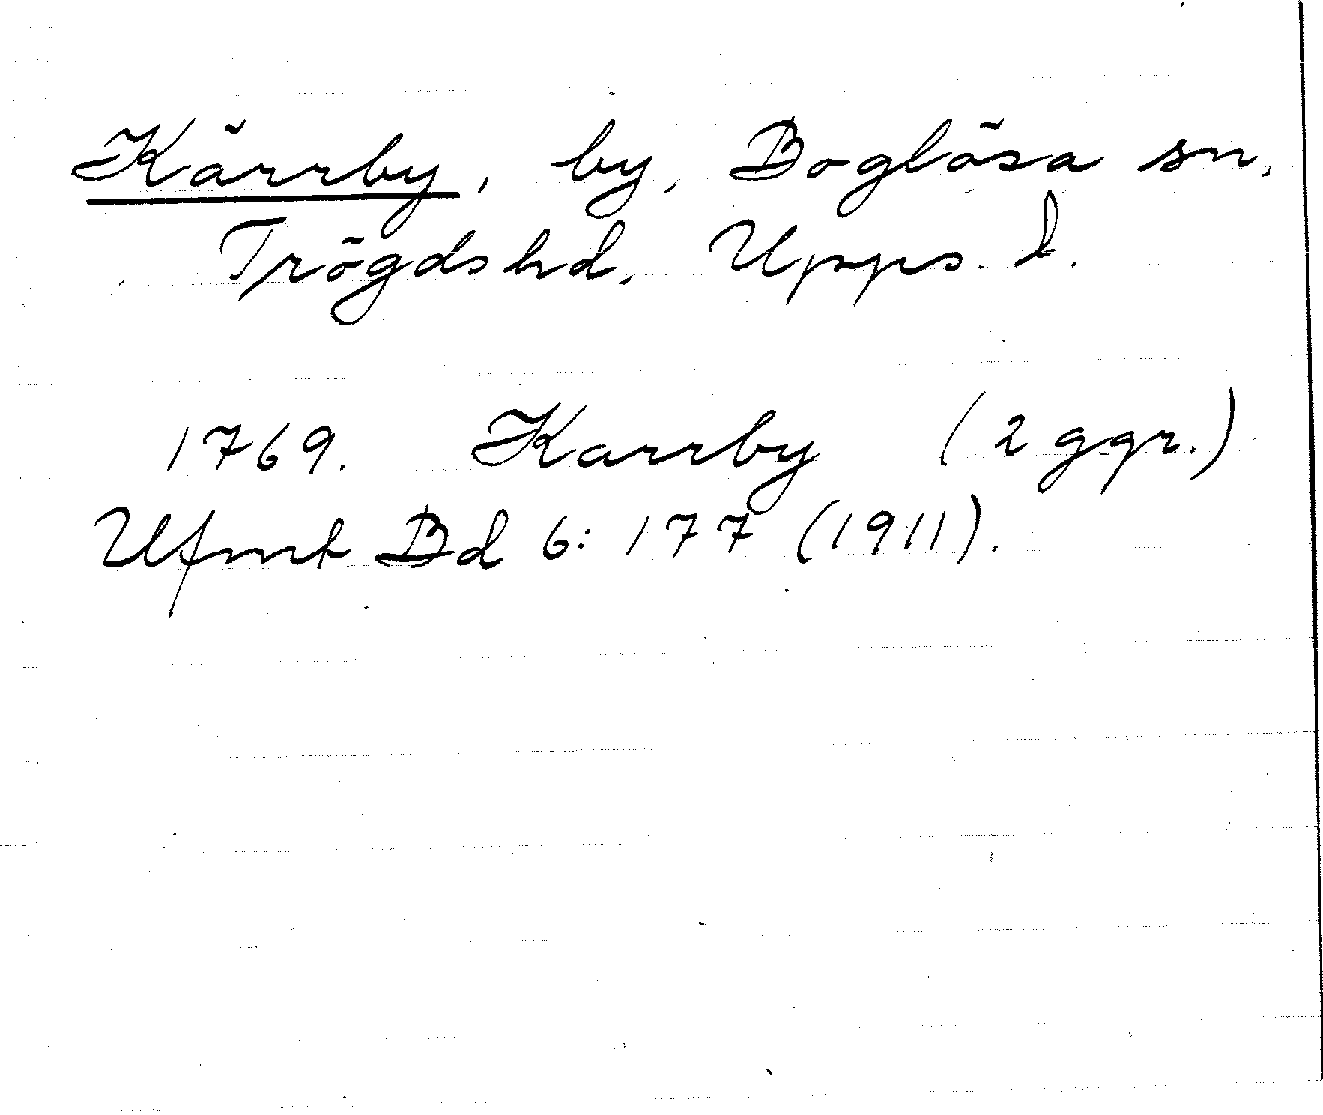 Kärrby, by, Boglösa sn,
Trögds hd, Upps. l.
1769. Karrby (2 ggr.)
Ufmt Bd 6: 177 (1911).